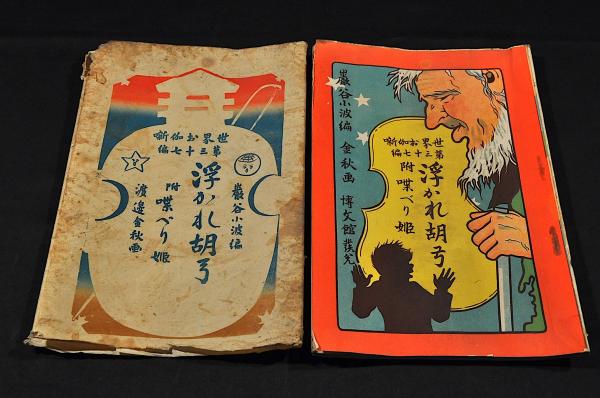 世界お伽噺
第三十七編
巖谷小波編
浮かれ胡弓
附 喋べり姫
渡邊金秋画
世界お伽噺
第三十七編
浮かれ胡弓
附 喋べり姫
巖谷小波編 金秋画 博文館發兌